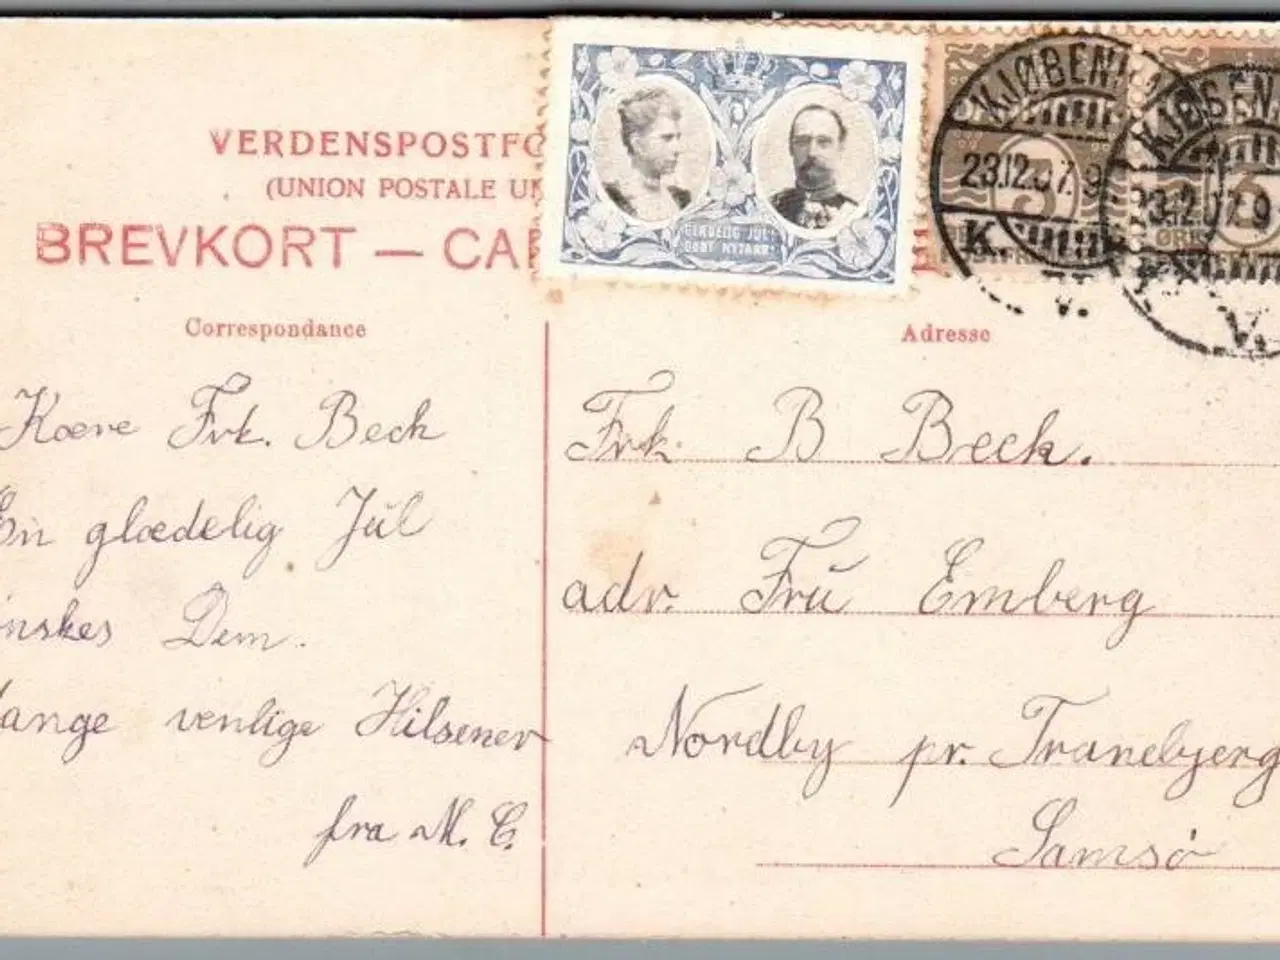 VERDENSPOSTFO
(UNION POSTALE UN
BREVKORT — CAR
GLÆDELIG JUL
GODT NYTAAR
KJØBENH
23.12.07.9
K.
V.
3
KJØBENH
23.12.07.9
V.
ØRE
Correspondance
Adresse
Kære Frk. Beck
En glædelig Jul
ønskes Dem.
Mange venlige Hilsener
fra M. C.
Frk. B Beck.
adr. Frū Emberg
Nordby pr. Tranebjerg
Samsø